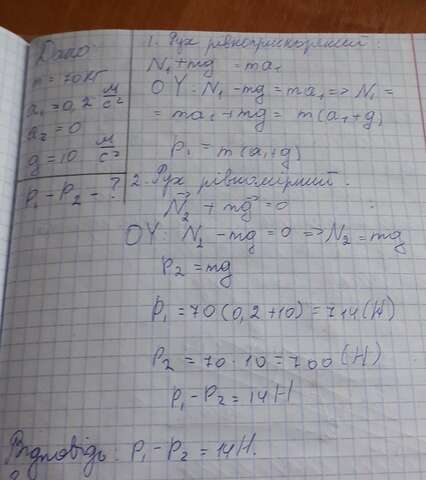 Дано
m = 70 кг
a₁ = 0,2 м/с²
a₂ = 0
g = 10 м/с²
P₁ - P₂ - ?
1. Рух рівноприскорений:
N₁ + mg = ma₁
OY: N₁ - mg = ma₁ => N₁ =
= ma₁ + mg = m(a₁ + g)
P₁ = m(a₁ + g)
2. Рух рівномірний.
N₂ + mg = 0
OY: N₂ - mg = 0 => N₂ = mg
P₂ = mg
P₁ = 70(0,2 + 10) = 714 (Н)
P₂ = 70 · 10 = 700 (Н)
P₁ - P₂ = 14 Н
Відповідь: P₁ - P₂ = 14 Н.